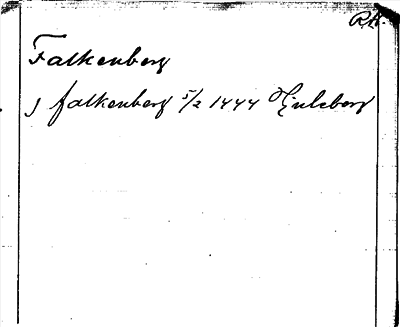 RA.
Falkenberg
J falkenberg 5/2 1444 Hjuleberg